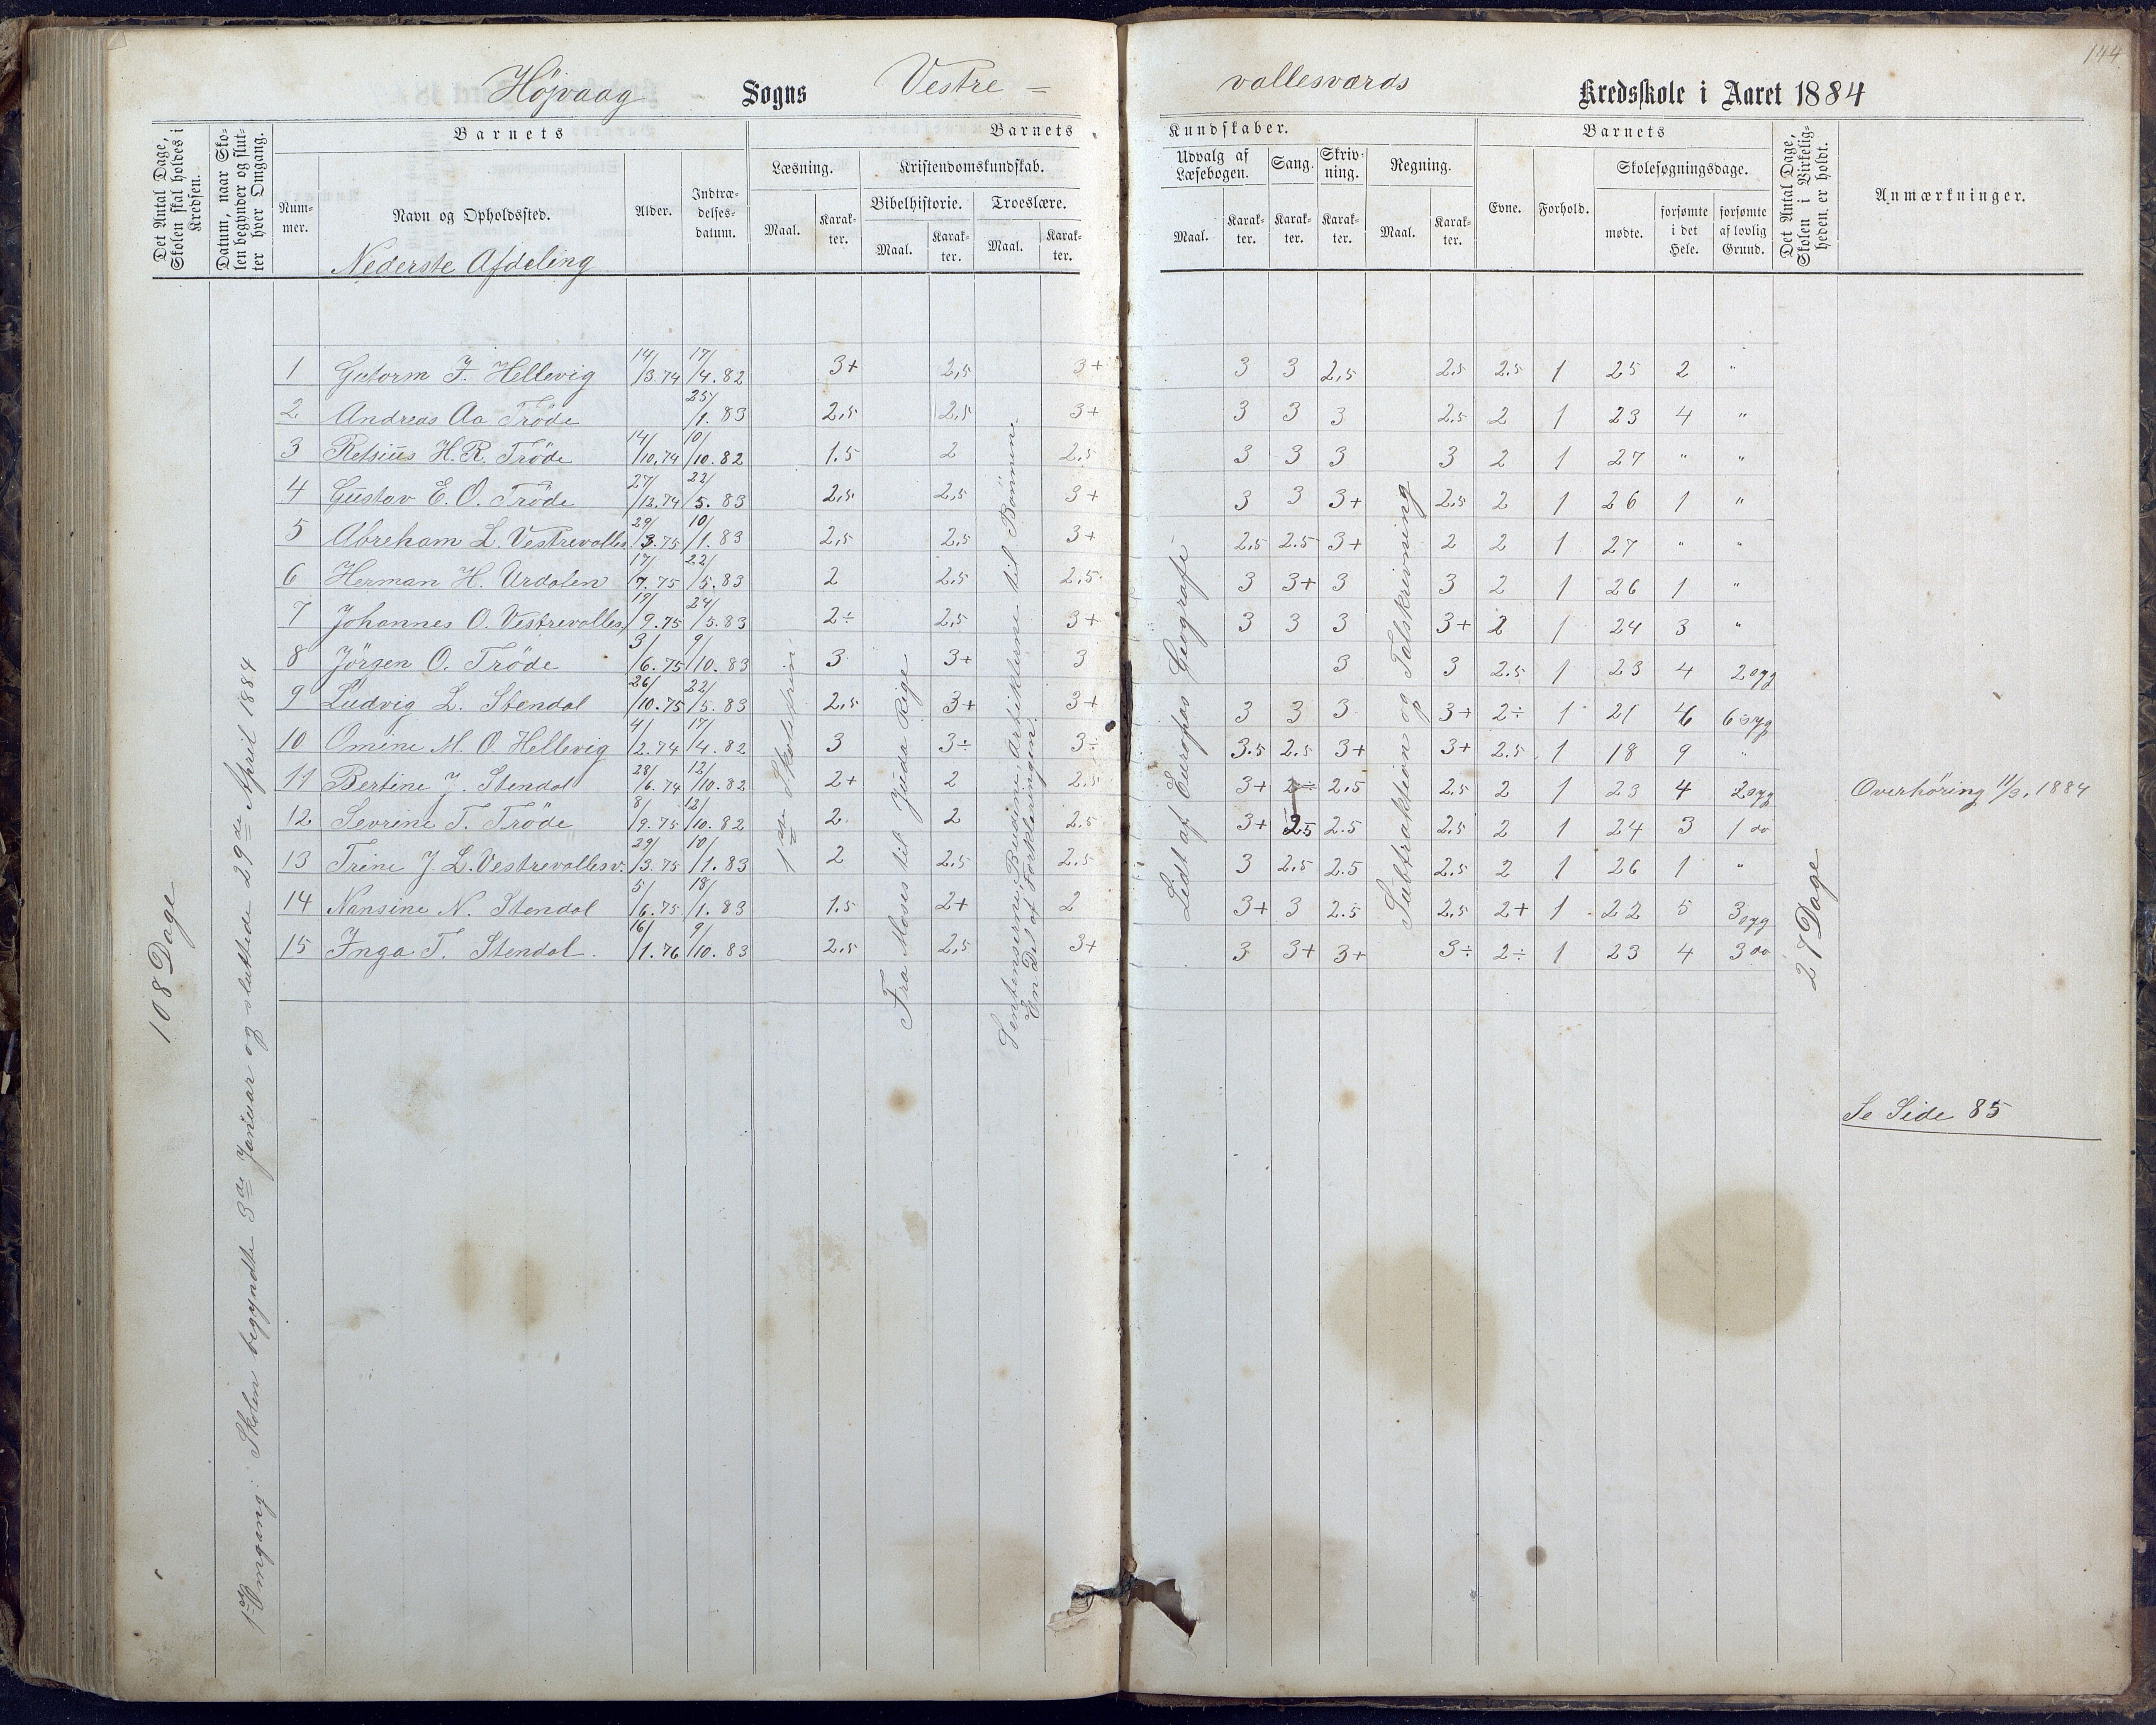 144
Højvaag Sogns Vestre =
vallesværds Kredsskole i Aaret 1884
Det Antal Dage, Skolen skal holdes i Kredsen.
Datum, naar Skolen begynder og slutter hver Omgang.
Barnets
Nummer.
Navn og Opholdssted.
Nederste Afdeling
Alder.
Indtrædelsesdatum.
Barnets
Læsning.
Maal.
Karakter.
Kristendomskundskab.
Bibelhistorie.
Maal.
Karakter.
Troeslære.
Maal.
Karakter.
Kundskaber.
Udvalg af Læsebogen.
Maal.
Karakter.
Sang.
Karakter.
Skrivning.
Karakter.
Regning.
Maal.
Karakter.
Barnets
Evne.
Forhold.
Skolesøgningsdage.
mødte.
forsømte i det Hele.
forsømte af lovlig Grund.
Det Antal Dage, Skolen i Virkeligheden er holdt.
Anmærkninger.
108 Dage
1ste Omgang: Skolen begyndte 3de Januar og sluttede 29de April 1884
1ste Skoletrin
Fra Moses til Juda Rige
Sentenserne, Budene, Artiklerne til Bønnene.
En Del af Forklaringen.
Lidt af Europas Geografi
Subtraktion og Talskrivning
27 Dage
1 Guttorm F. Hellevig 14/3.74 17/4.82 3+ 2,5 3+ 3 3 2,5 2.5 2.5 1 25 2 "
2 Andreas Aa Trøde 25/1.83 2,5 2,5 3+ 3 3 3 2.5 2 1 23 4 "
3 Retsius H.R. Trøde 14/10.74 10/10.82 1.5 2 2.5 3 3 3 3 2 1 27 " "
4 Gustav E. O. Trøde 27/12.74 22/5.83 2,5 2,5 3+ 3 3 3+ 2.5 2 1 26 1 "
5 Abreham L. Vestrevalles. 29/3.75 10/1.83 2,5 2,5 3+ 2,5 2.5 3+ 2 2 1 27 " "
6 Herman H. Urdalen 17/7.75 22/5.83 2 2.5 2.5 3 3+ 3 3 2 1 26 1 "
7 Johannes O. Vestrevalles. 19/9.75 24/5.83 2÷ 2,5 3+ 3 3 3 3+ 2 1 24 3 "
8 Jørgen O. Trøde 3/6.75 9/10.83 3 3+ 3 3 3 2.5 1 23 4 2 syg
9 Ludvig L. Stendal 26/10.75 22/5.83 2,5 3+ 3+ 3 3 3 3+ 2÷ 1 21 6 6 syg
10 Omine M. O. Hellevig 4/2.74 17/4.82 3 3÷ 3÷ 3.5 2.5 3+ 3+ 2.5 1 18 9 "
11 Bertine J. Stendal 28/6.74 12/10.82 2+ 2 2.5 3+ 2÷ 2.5 2.5 2 1 23 4 2 syg Overhøring 11/3. 1884
12 Sevrine T. Trøde 8/9.75 12/10.82 2 2 2.5 3+ 2.5 2.5 2.5 2 1 24 3 1 do
13 Trine J. L. Vestrevallesv. 29/3.75 10/1.83 2 2.5 2.5 3 2.5 2.5 2.5 2 1 26 1 "
14 Nansine N. Stendal 5/6.75 18/1.83 1.5 2+ 2 3+ 3 2.5 2.5 2+ 1 22 5 3 syg
15 Inga T. Stendal. 16/1.76 9/10.83 2,5 2,5 3+ 3 3+ 3+ 3÷ 2÷ 1 23 4 3 do
Se Side 85